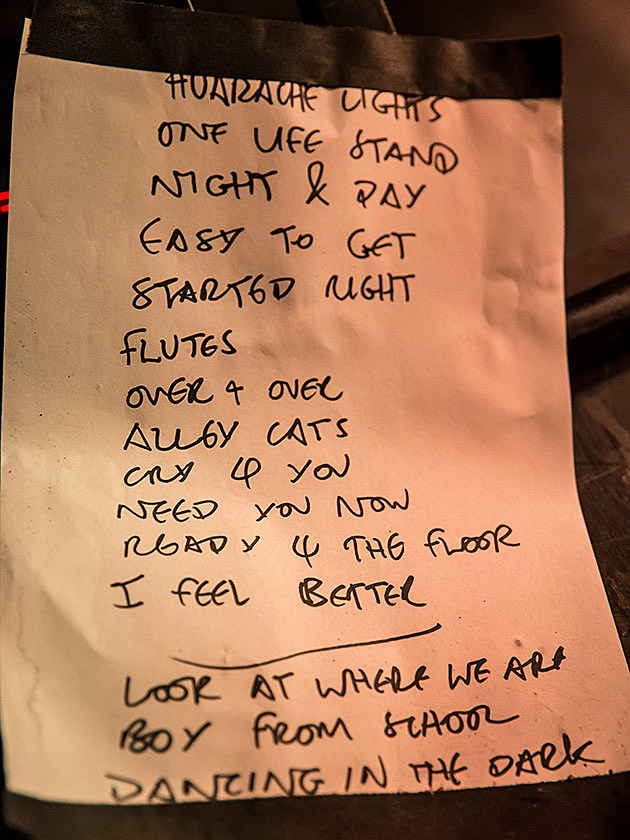 HUARACHE LIGHTS
ONE LIFE STAND
NIGHT & DAY
EASY TO GET
STARTED RIGHT
FLUTES
OVER & OVER
ALLEY CATS
CRY 4 YOU
NEED YOU NOW
READY 4 THE FLOOR
I FEEL BETTER
LOOK AT WHERE WE ARE
BOY FROM SCHOOL
DANCING IN THE DARK